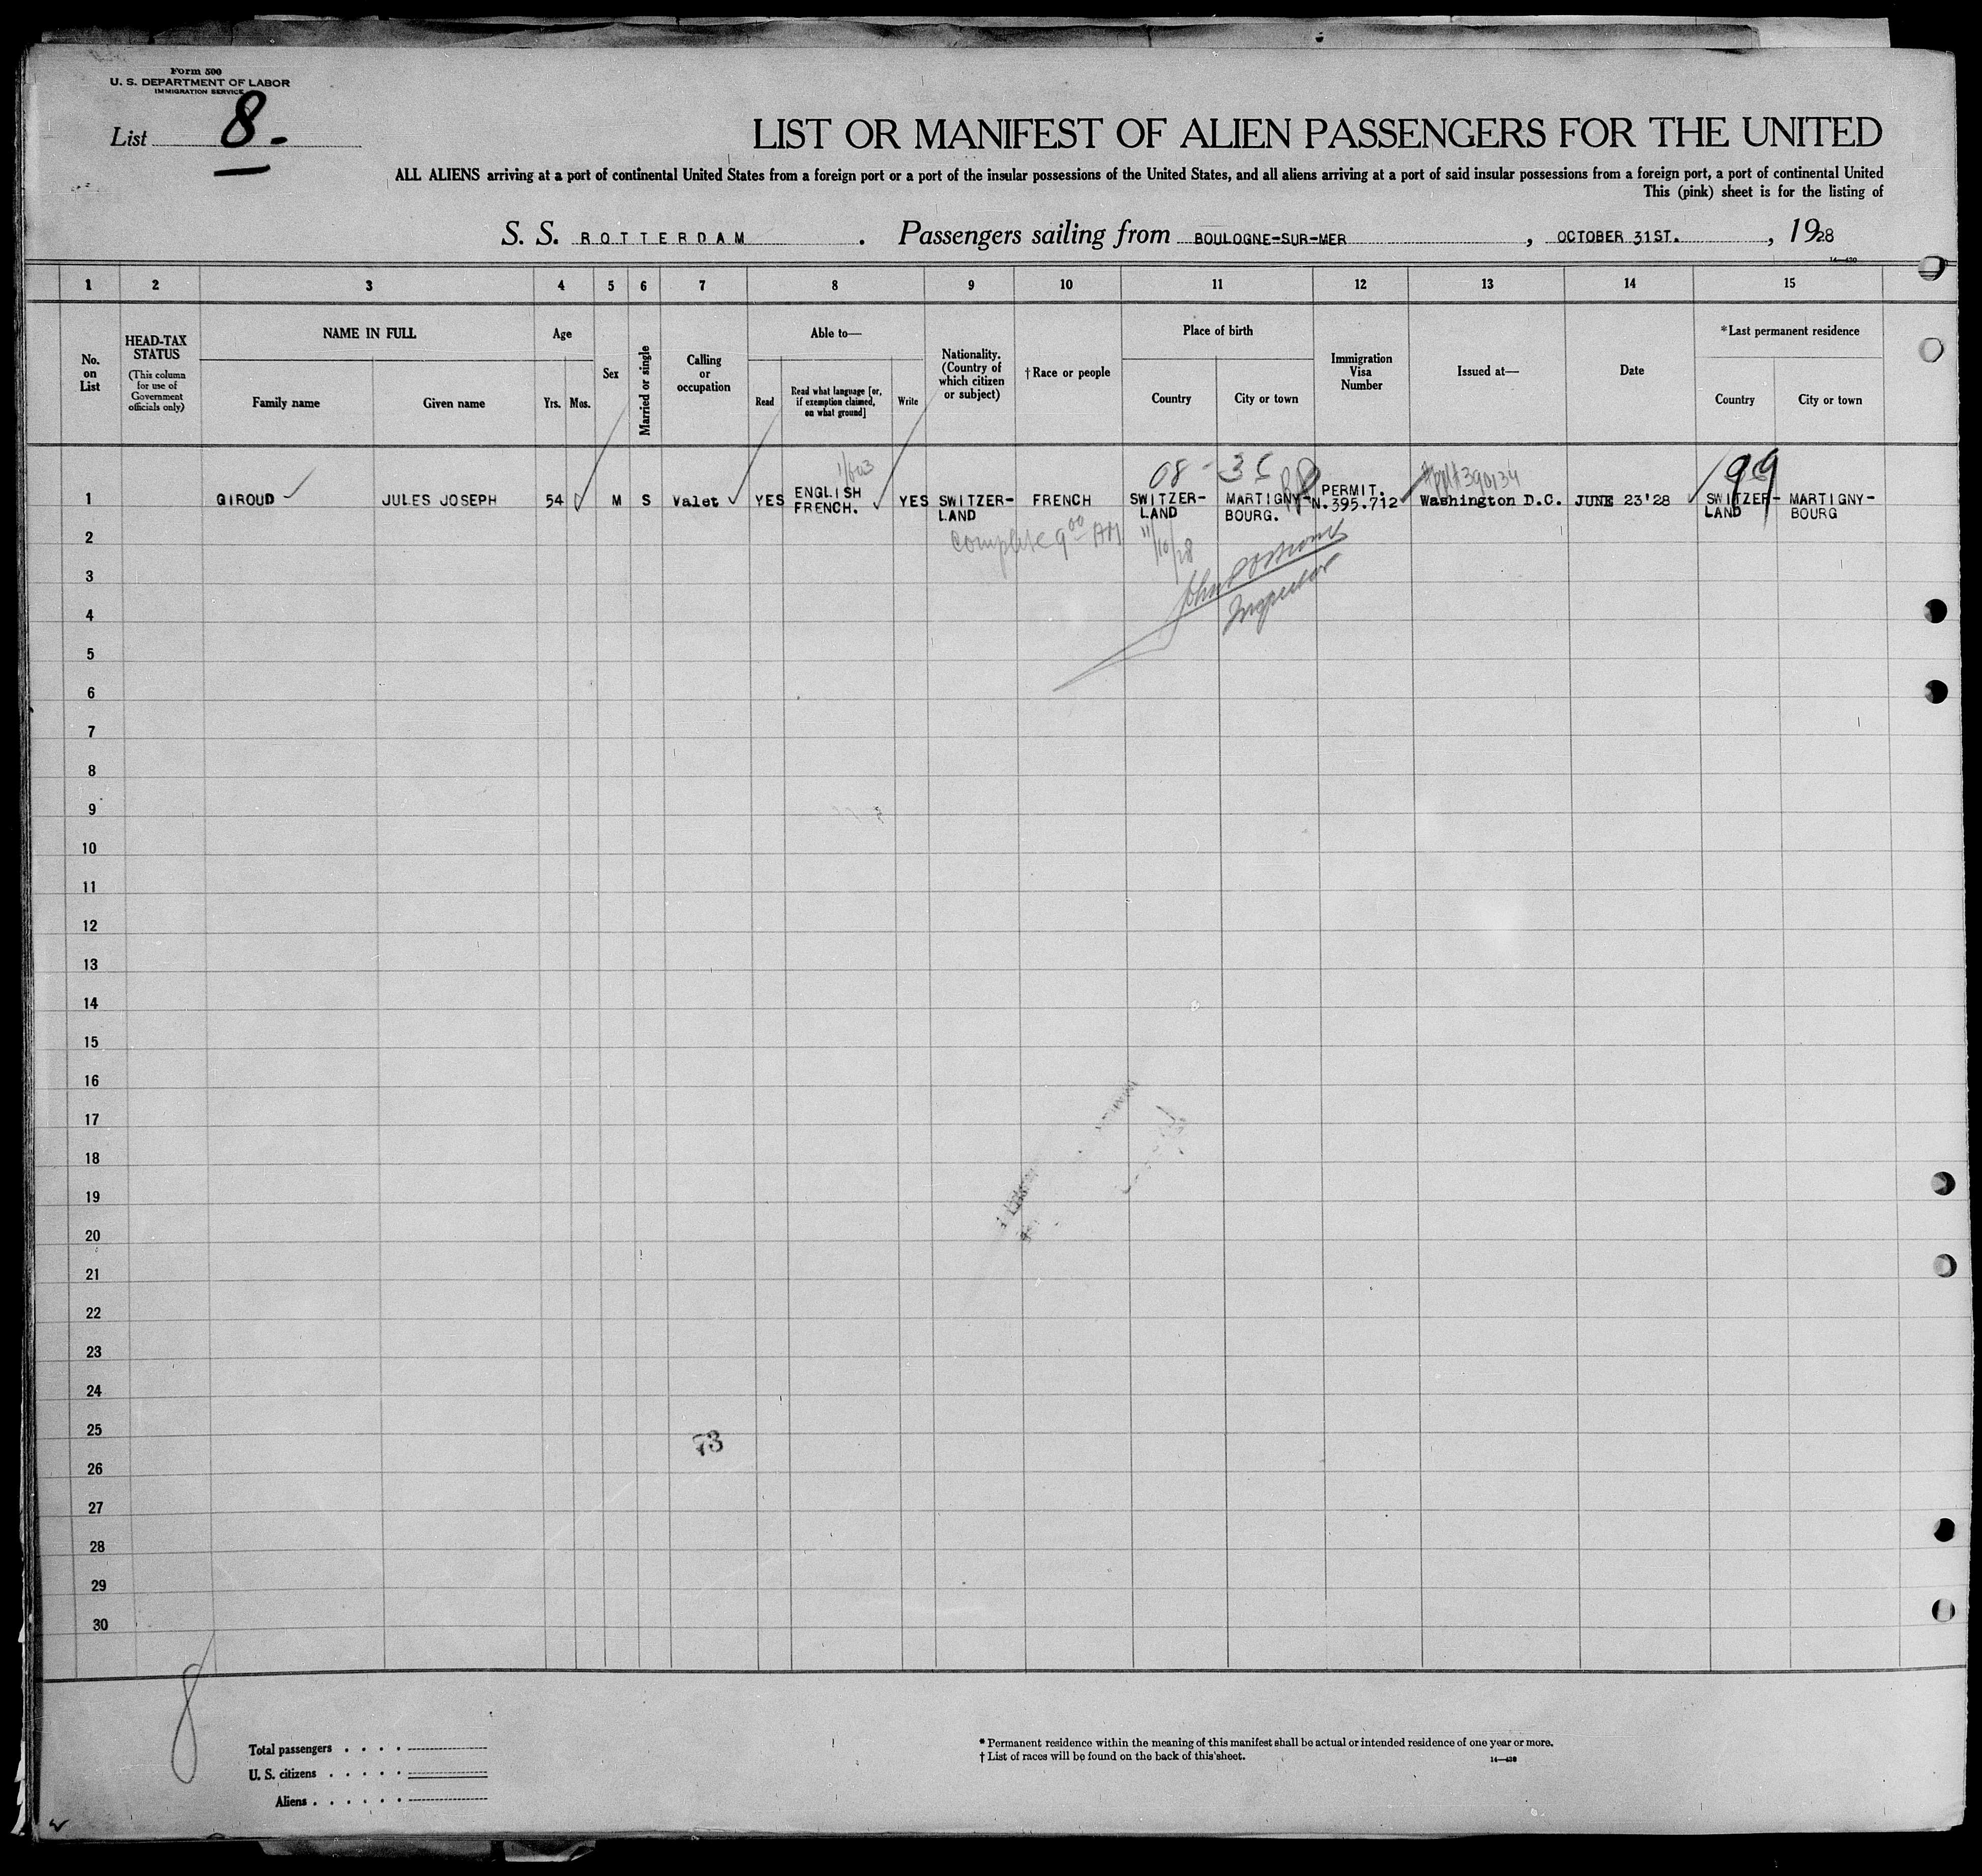 Form 500
U. S. DEPARTMENT OF LABOR
IMMIGRATION SERVICE
List 8-
LIST OR MANIFEST OF ALIEN PASSENGERS FOR THE UNITED
ALL ALIENS arriving at a port of continental United States from a foreign port or a port of the insular possessions of the United States, and all aliens arriving at a port of said insular possessions from a foreign port, a port of continental United
This (pink) sheet is for the listing of
S. S. ROTTERDAM . Passengers sailing from BOULOGNE-SUR-MER , OCTOBER 31ST. , 1928
1 2 3 4 5 6 7 8 9 10 11 12 13 14 15
No. on List
HEAD-TAX STATUS
(This column for use of Government officials only)
NAME IN FULL
Family name
Given name
Age
Yrs.
Mos.
Sex
Married or single
Calling or occupation
Able to—
Read
Read what language [or, if exemption claimed, on what ground]
Write
Nationality. (Country of which citizen or subject)
†Race or people
Place of birth
Country
City or town
Immigration Visa Number
Issued at—
Date
*Last permanent residence
Country
City or town
08 - 36
99
1 GIROUD JULES JOSEPH 54 M S Valet YES ENGLISH FRENCH. YES SWITZER-LAND FRENCH SWITZER-LAND MARTIGNY-BOURG. PERMIT. N.395.712 Washington D.C. JUNE 23'28 SWITZER-LAND MARTIGNY-BOURG
complete 9 00 AM 11/10/28
Inspector
2
3
4
5
6
7
8
9
10
11
12
13
14
15
16
17
18
19
20
21
22
23
24
25
73
26
27
28
29
30
8
Total passengers
U. S. citizens
Aliens
* Permanent residence within the meaning of this manifest shall be actual or intended residence of one year or more.
† List of races will be found on the back of this sheet.